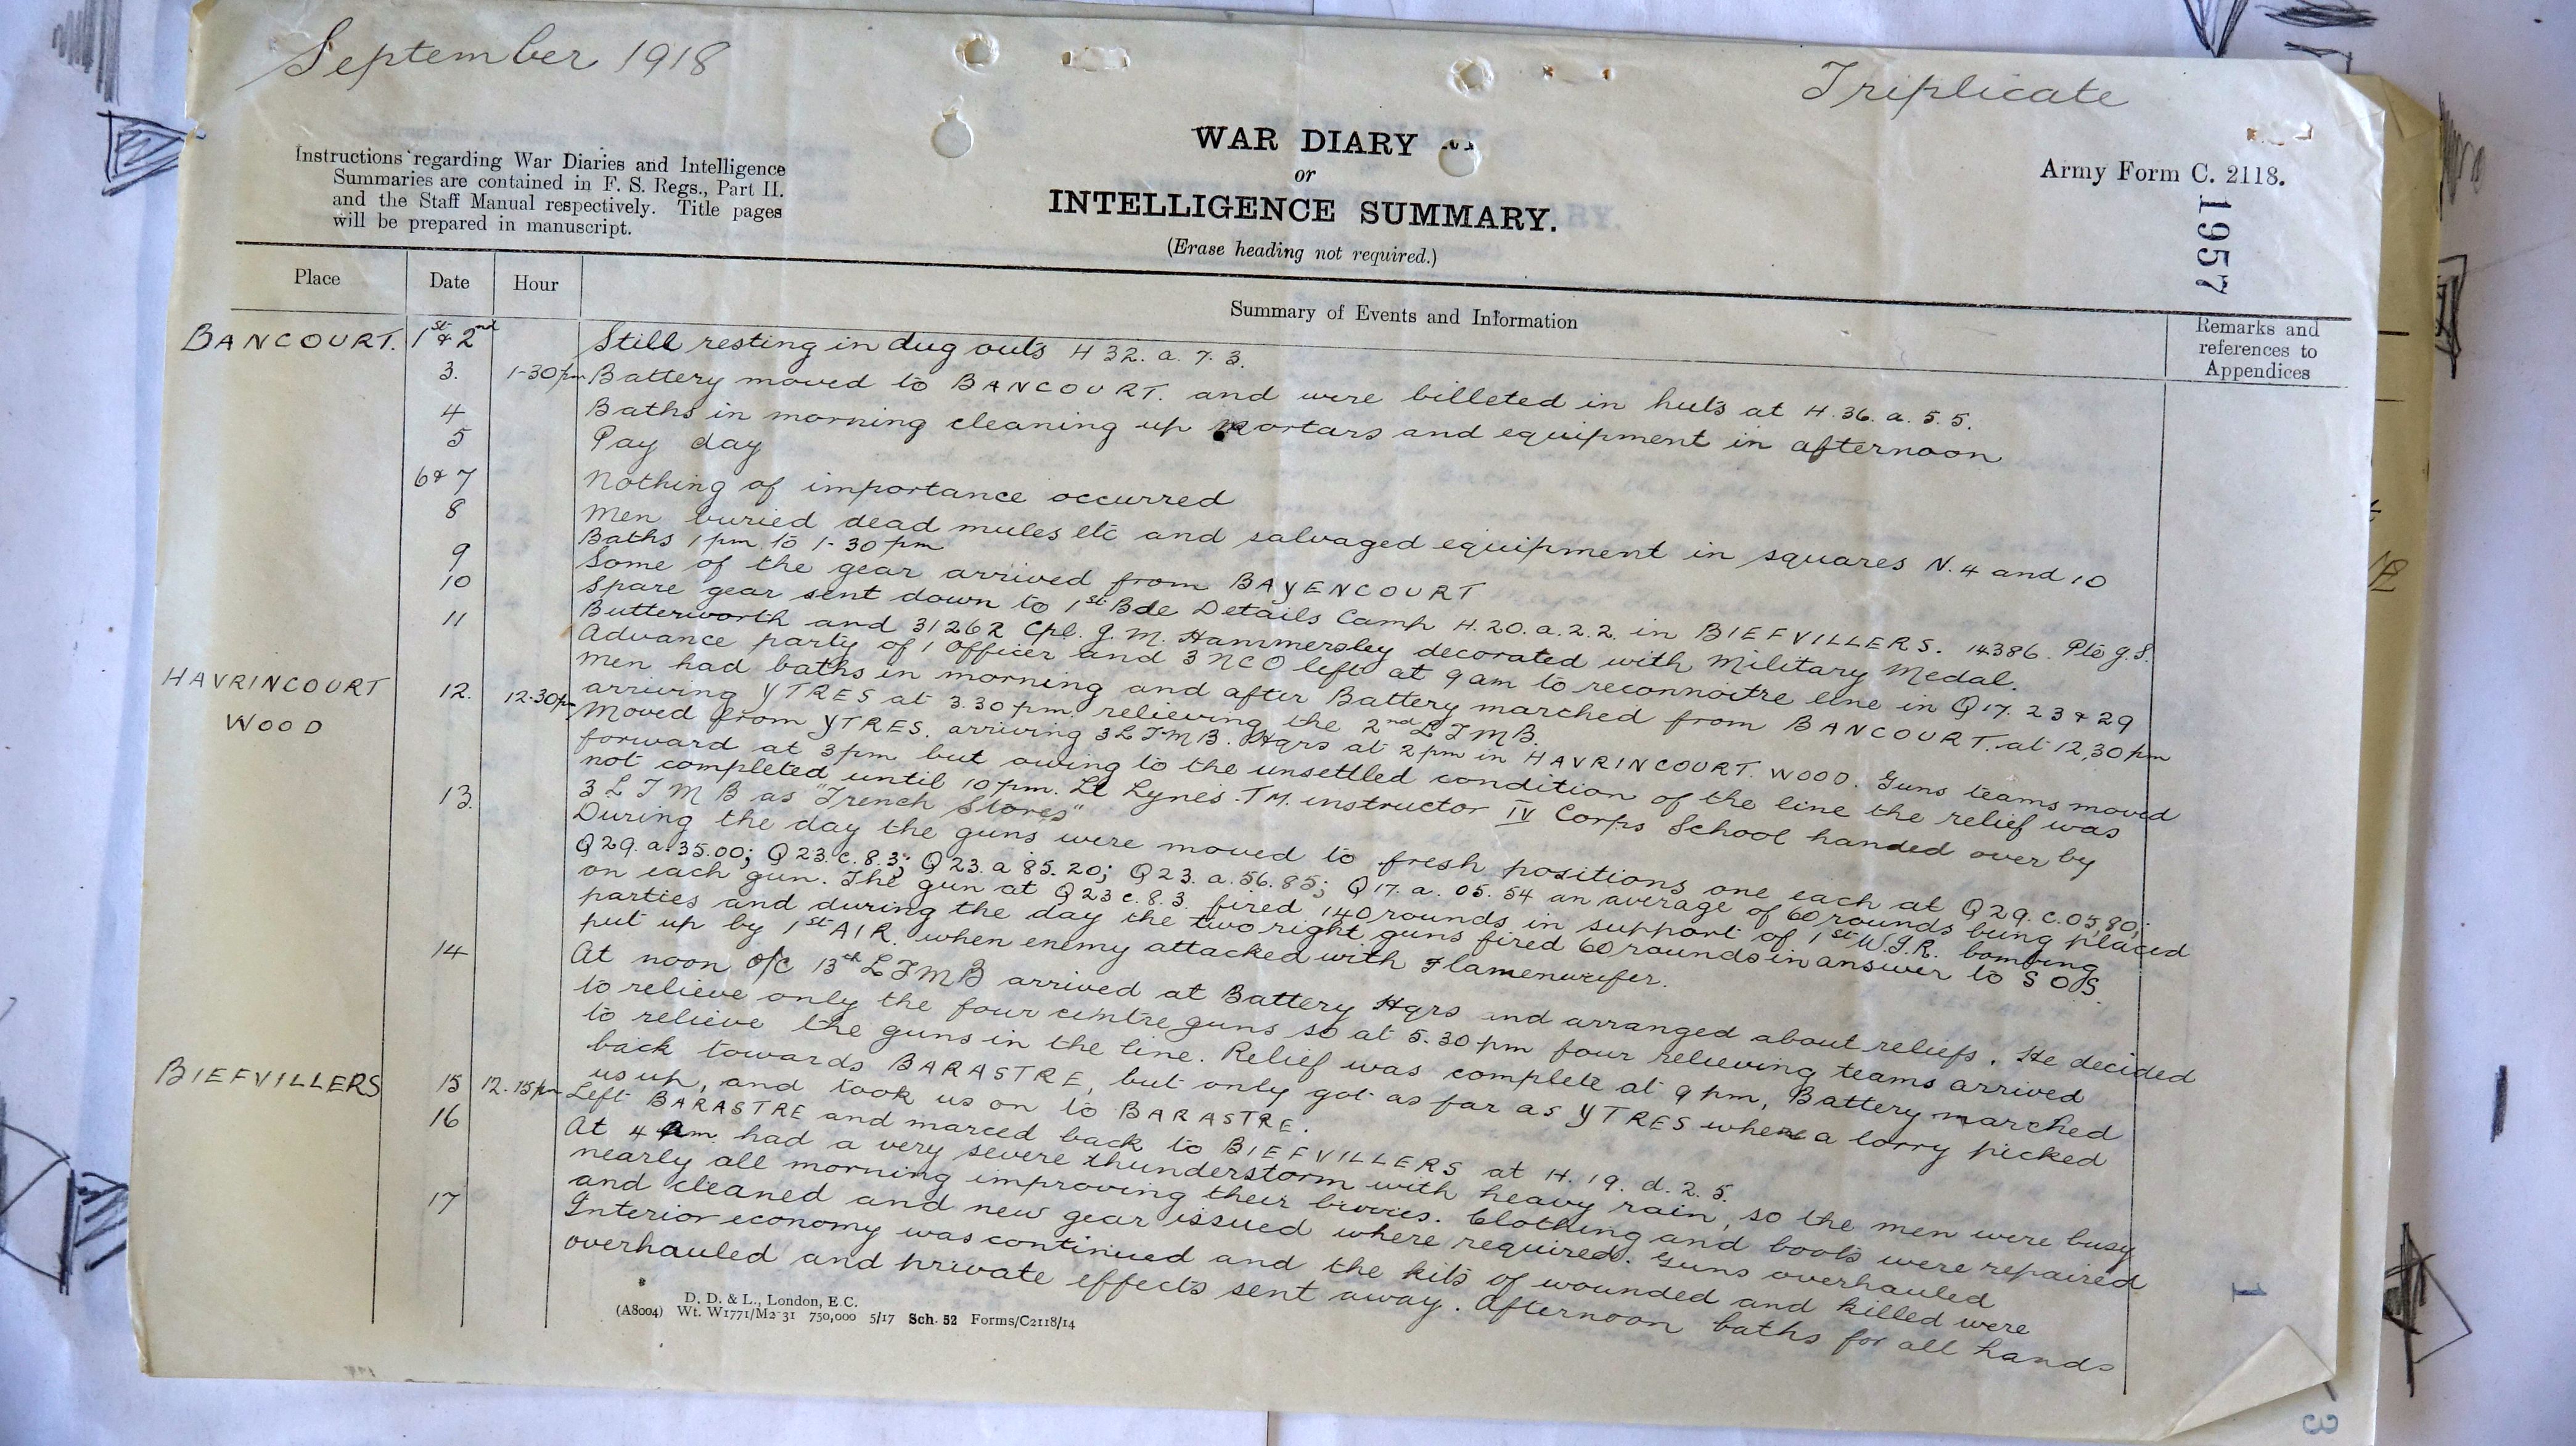 September 1918
Triplicate
Instructions regarding War Diaries and Intelligence
Summaries are contained in F. S. Regs., Part II.
and the Staff Manual respectively. Title pages
will be prepared in manuscript.
WAR DIARY
or
INTELLIGENCE SUMMARY.
(Erase heading not required.)
Army Form C. 2118.
1957
Place Date Hour Summary of Events and Information Remarks and references to Appendices
BANCOURT. 1st & 2nd Still resting in dug outs H 32. a. 7. 3.
3. 1-30pm Battery moved to BANCOURT. and were billeted in huts at H. 36. a. 5. 5.
4 Baths in morning cleaning up mortars and equipment in afternoon
5 Pay day
6 & 7 Nothing of importance occurred
8 Men buried dead mules etc and salvaged equipment in squares N. 4 and 10
Baths 1 pm. to 1-30 pm
9 Some of the gear arrived from BAYENCOURT
10 Spare gear sent down to 1st Bde Details Camp H. 20. a. 2. 2. in BIEFVILLERS. 14386. Pte G. S.
Butterworth and 31262 Cpl. G. M. Hammersley decorated with Military Medal.
11 Advance party of 1 Officer and 3 NCO left at 9 am to reconnoitre line in Q 17. 23 & 29
Men had baths in morning and after Battery marched from BANCOURT. at 12,30 pm
arriving YTRES at 3.30 pm. relieving the 2nd L T M B.
HAVRINCOURT WOOD 12. 12-30pm Moved from YTRES. arriving 3 L T M B. Hqrs at 2 pm in HAVRINCOURT. WOOD. Guns teams moved
forward at 3 pm but owing to the unsettled condition of the line the relief was
not completed until 10 pm. Lt Lynes. T M. instructor IV Corps School handed over by
3 L T M B as "Trench Stores"
13. During the day the guns were moved to fresh positions one each at Q 29. c. 05, 80;
Q 29. a. 35. 00; Q 23. c. 8. 3; Q 23. a 85. 20; Q 23. a. 56. 85; Q 17. a. 05. 54 an average of 60 rounds being placed
on each gun. The gun at Q 23 c. 8. 3. fired 140 rounds in support of 1st W. I. R. bombing
parties and during the day the two right guns fired 60 rounds in answer to S O S.
put up by 1st A I R. when enemy attacked with flamenwerfer.
14 At noon O/C 13th L T M B arrived at Battery Hqrs and arranged about reliefs. He decided
to relieve only the four centre guns so at 5. 30 pm four relieving teams arrived
to relieve the guns in the line. Relief was complete at 9 pm, Battery marched
back towards BARASTRE, but only got as far as YTRES where a lorry picked
us up, and took us on to BARASTRE.
BIEFVILLERS 15 12. 15pm Left BARASTRE and marced back to BIEFVILLERS at H. 19. d. 2. 5.
16 At 4 am. had a very severe thunderstorm with heavy rain, so the men were busy
nearly all morning improving their bivvies. Clothing and boots were repaired
and cleaned and new gear issued where required. Guns overhauled
17 Interior economy was continued and the kits of wounded and killed were
overhauled and private effects sent away. Afternoon baths for all hands
D. D. & L., London, E.C.
(A8004) Wt. W1771/M2 31 750,000 5/17 Sch. 52 Forms/C2118/14
1
3